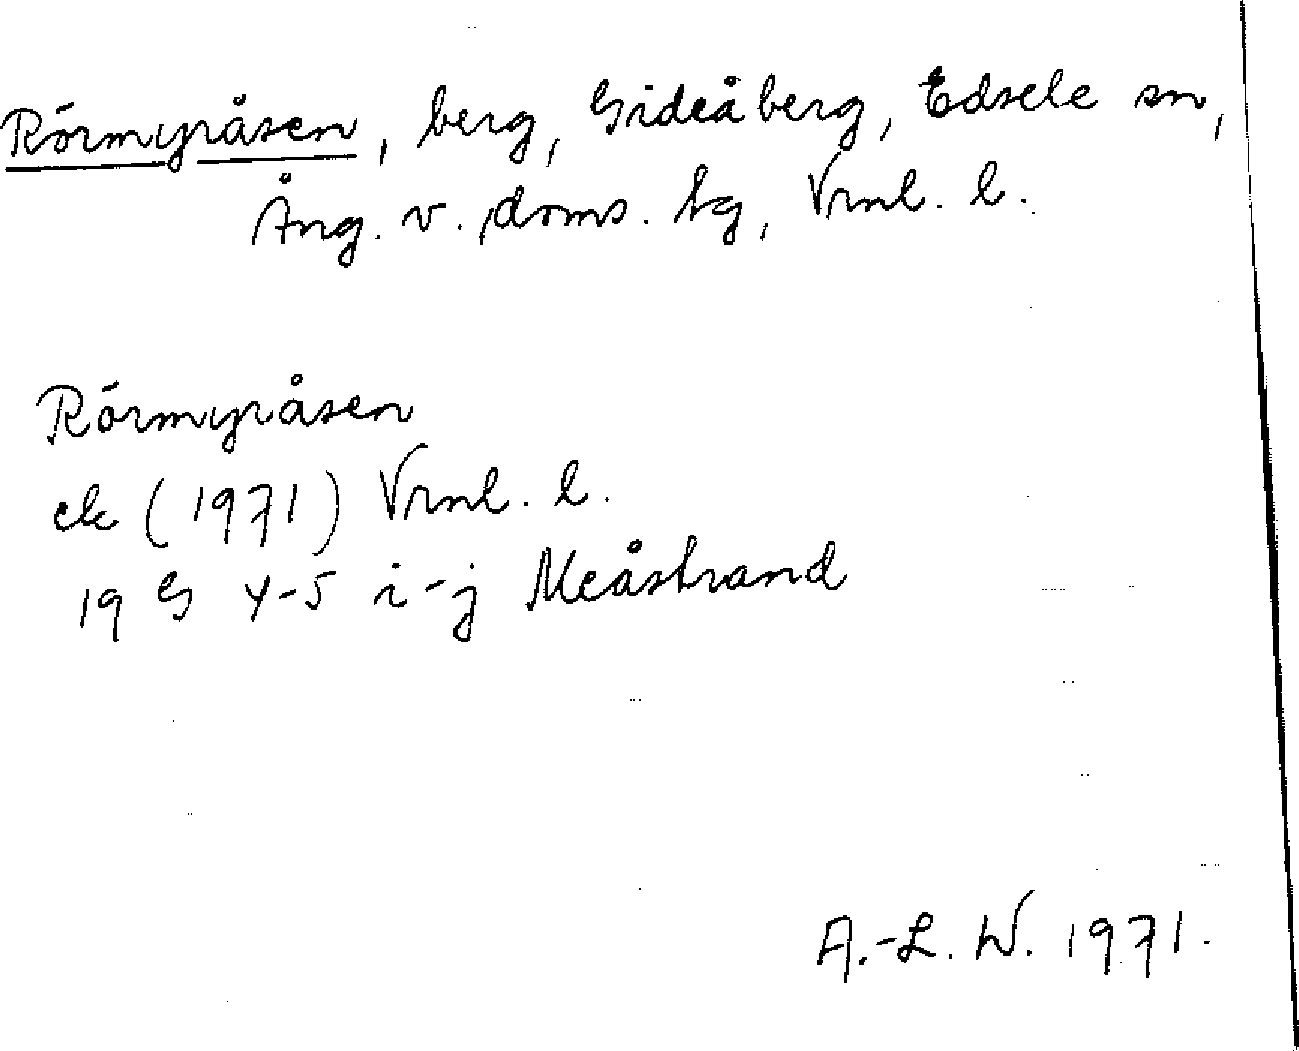 Rörmyråsen, berg, Gideåberg, Edsele sn,
Ång. v. doms. hg, Vrnl. l.
Rörmyråsen
ek (1971) Vrnl. l.
19 G 4-5 i-j Meåstrand
A.-L. W. 1971.